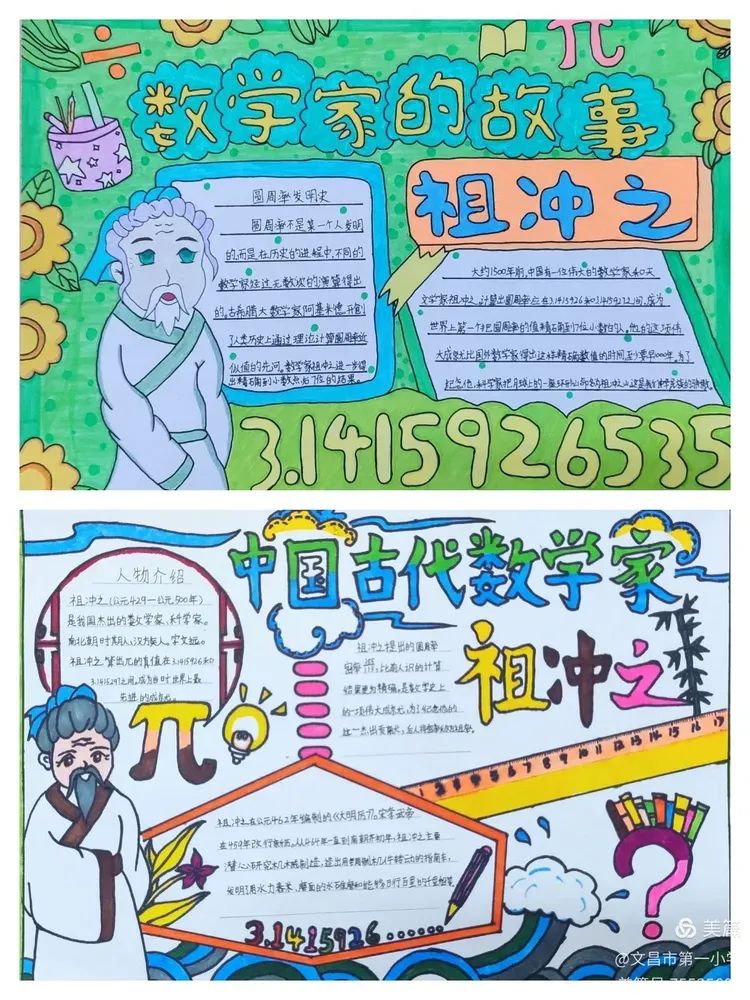 ÷
π
数学家的故事
圆周率发明史
圆周率不是某一个人发明
的,而是在历史的进程中,不同的
数学家经过无数次的演算得出
的。古希腊大数学家阿基米德开创
了人类历史上通过理论计算圆周率近
似值的先河。数学家祖冲之进一步得
出精确到小数点后7位的结果。
祖冲之
大约1500年前,中国有一位伟大的数学家和天
文学家祖冲之。计算出圆周率应在3.1415926和3.1415927之间,成为
世界上第一个把圆周率的值精确到7位小数的人。他的这项伟
大成就比国外数学家得出这样精确数值的时间至少要早1000年。为了
纪念他,科学家把月球上的一座环形山命名为祖冲之山,这是我们中华民族的骄傲。
3.1415926535
中国古代数学家
祖冲之
人物介绍
祖冲之(公元429—公元500年)
是我国杰出的数学家、科学家。
南北朝时期人,汉族人。字文远。
祖冲之算出π的真值在3.1415926和
3.1415927之间,成为当时世界上最
先进的成就。
π
祖冲之提出的圆周率
密率,比前人识的计算
结果更为精确,是数学史上
的一项伟大成就,为了纪念他的
这一杰出贡献,
1 2 3 4 5 6 7 8 9 10 11 12 13 14 15 16 17
祖冲之在公元462年编制的《大明历》。宋孝武帝
在459年改行新历。从464年一直到南朝齐初年,祖冲之主要
精心研究机械制造,造出用铜制机件转动的指南车,
发明了用水力舂米、磨面的水碓磨和能够日行百里的千里船等。
3.1415926......
?
美篇
@文昌市第一小学